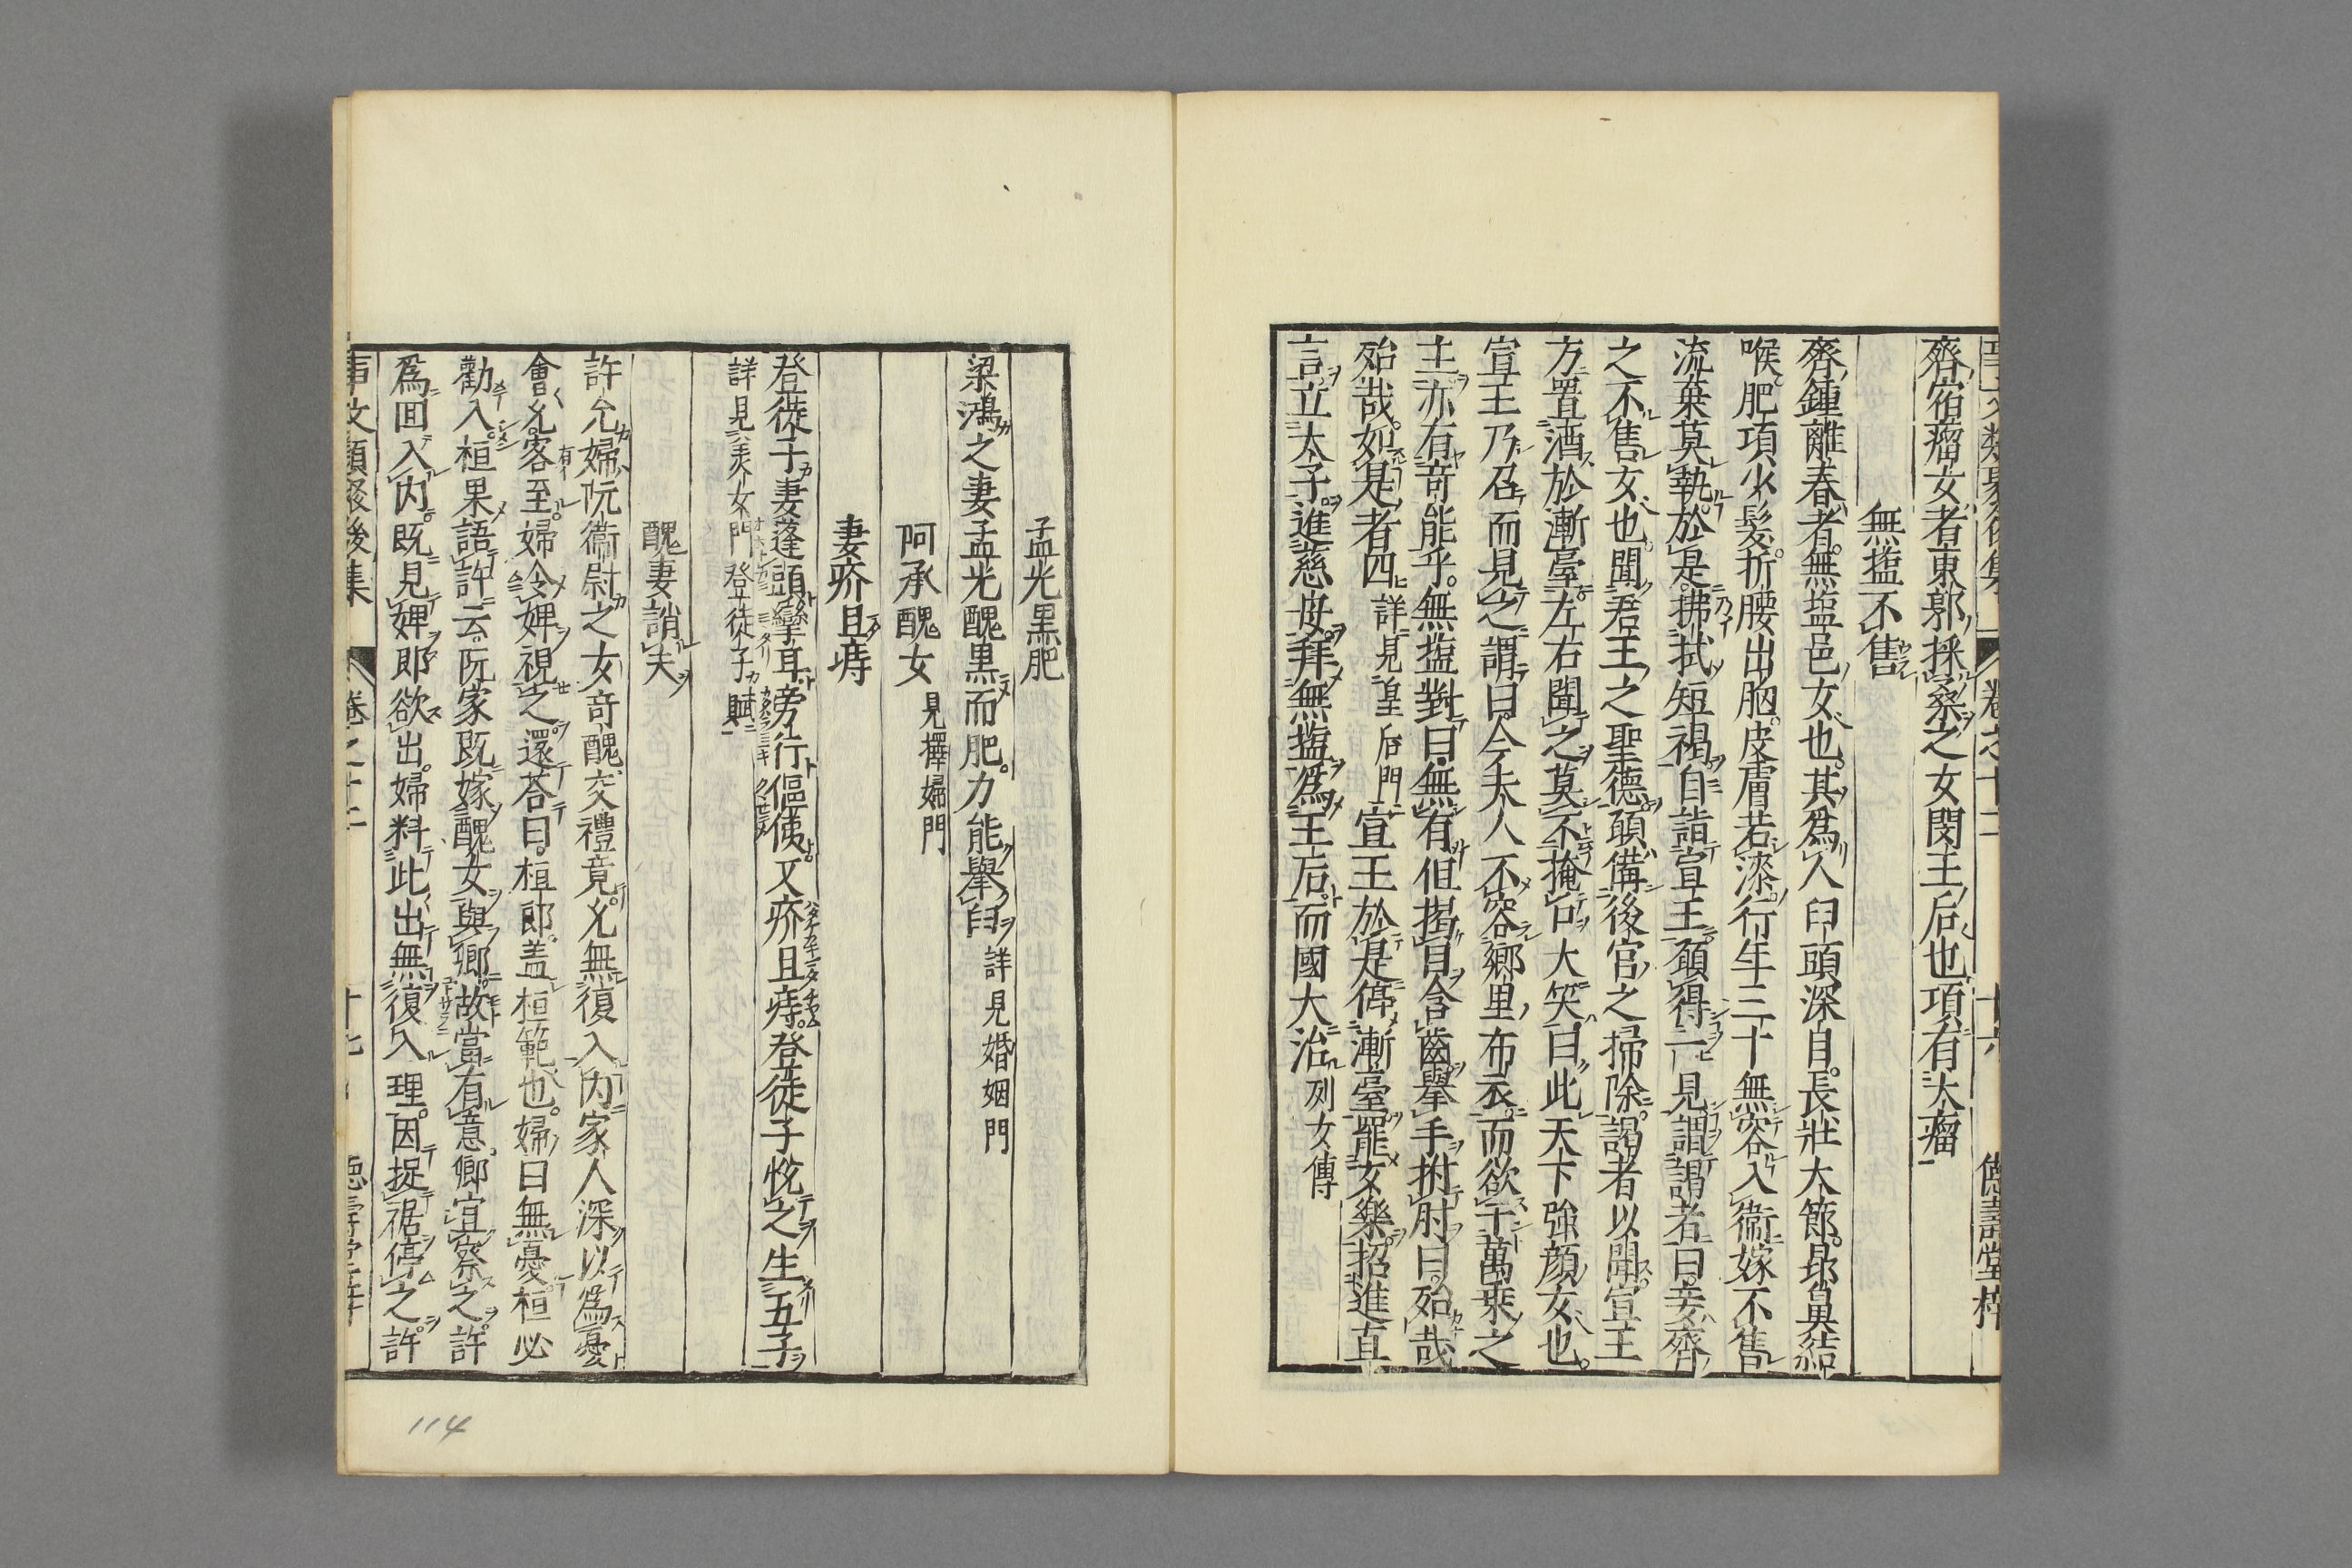 事文類聚後集 卷之十二 十六 德壽堂梓
齊宿瘤女者東郭採桑之女閔王后也項有大瘤
無塩不售
齊鍾離春者無塩邑女也其爲人臼頭深目長壯大節昂鼻結
喉肥項少髮折腰出胸皮膚若漆行年三十無容入衒嫁不售
流棄莫執於是拂拭短褐自詣宣王願得一見謂謁者曰妾齊
之不售女也聞君王之聖德願備後宮之掃除謁者以聞宣王
方置酒於漸臺左右聞之莫不掩口大笑曰此天下強顔女也
宣王乃召而見之謂曰今夫人不容鄉里布衣而欲干萬乘之
主亦有奇能乎無塩對曰無有但揚目含齒舉手拊肘曰殆哉
殆哉如是者四 詳見皇后門 宣王於是停漸臺罷女樂招進直
言立太子進慈母拜無塩爲王后而國大治 列女傳
孟光黒肥
梁鴻之妻孟光醜黒而肥力能舉臼 詳見婚姻門
阿承醜女 見擇婦門
妻疥且痔
登徒子妻蓬頭攣耳旁行傴僂又疥且痔登徒子悅之生五子
詳見美人女門登徒子賦
醜妻誚夫
許允婦阮衞尉之女奇醜交禮竟允無復入内家人深以爲憂
會允客至婦令婢視之還荅曰桓郎蓋桓範也婦曰無憂桓必
勸入桓果語許云阮家既嫁醜女與卿故當有意卿宜察之許
爲回入内既見婢即欲出婦料此出無復入理因捉裾停之許
事文類聚後集 卷之十二 十七 德壽堂梓
114